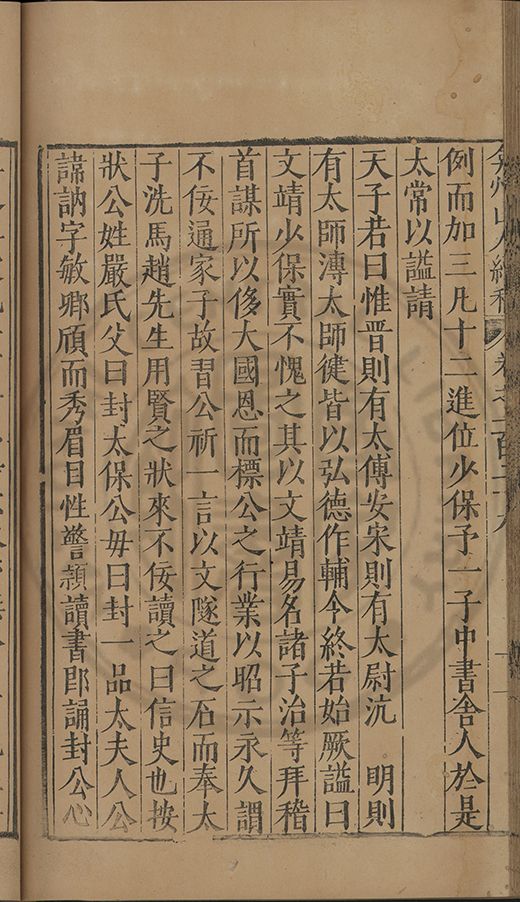 弇州山人續稿 卷之一百二十八
例而加三凡十二進位少保予一子中書舍人於是
太常以謚請
天子若曰惟晉則有太傅安宋則有太尉沆 明則
有太師溥太師健皆以弘德作輔令終若始厥謚曰
文靖少保實不愧之其以文靖易名諸子治等拜稽
首謀所以侈大國恩而標公之行業以昭示永久謂
不佞通家子故習公祈一言以文隧道之石而奉太
子洗馬趙先生用賢之狀來不佞讀之曰信史也按
狀公姓嚴氏父曰封太保公毋曰封一品太夫人公
諱訥字敏卿頎而秀眉目性警頴讀書即誦封公心